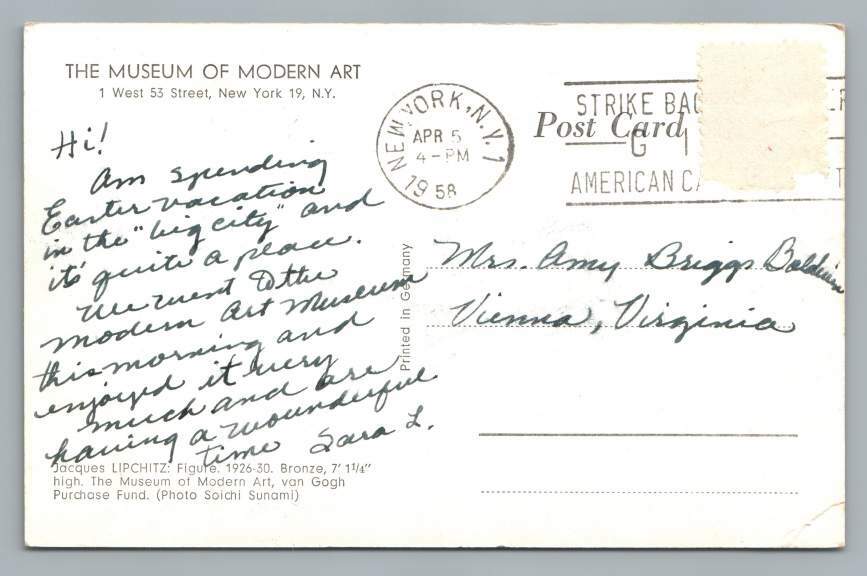 THE MUSEUM OF MODERN ART
1 West 53 Street, New York 19, N.Y.
NEW YORK, N.Y. 1
APR 5
4-PM
1958
Post Card
STRIKE BAC
G I
AMERICAN CA
Hi!
Am spending
Easter vacation
in the "big city" and
it's quite a place.
We went to the
Modern Art Museum
this morning and
enjoyed it very
much and are
having a wounderful
time Sara L.
Printed in Germany
Mrs. Amy Briggs Baldwin
Vienna, Virginia
Jacques LIPCHITZ: Figure. 1926-30. Bronze, 7' 1¼"
high. The Museum of Modern Art, van Gogh
Purchase Fund. (Photo Soichi Sunami)